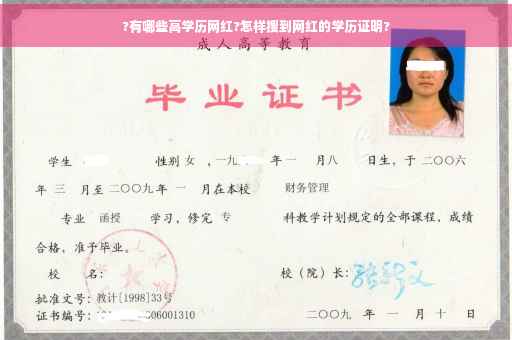 ?有哪些高学历网红?怎样搜到网红的学历证明?
成人高等教育
毕业证书
学生 性别 女 ，一九 年一 月八 日生，于二〇〇六
年 三 月至二〇〇九年 一 月在本校 财务管理
专业 函授 学习，修完 专 科教学计划规定的全部课程，成绩
合格，准予毕业。
校 名： 校（院）长：
批准文号：教计[1998]33号
证书编号： 06001310 二〇〇九 年 一 月 十 日